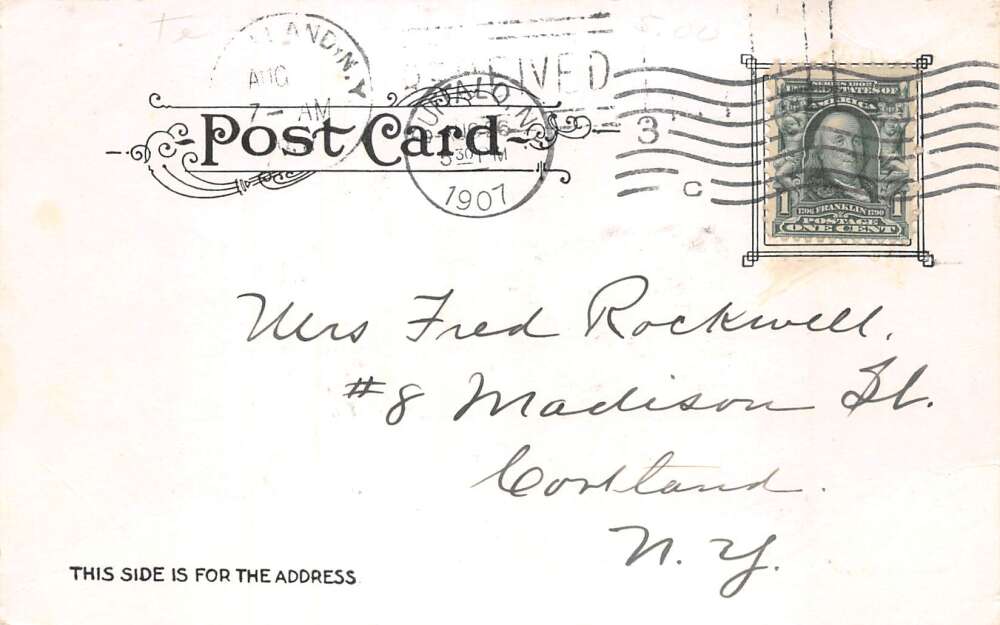 LAND, N.Y.
AUG
7 - AM
RECEIVED
5.00
POST CARD
BUFFALO, N.
530 PM
1907
3
C
UNITED STATES OF
AMERICA
1 1706 FRANKLIN 1790 1
POSTAGE
ONE CENT
Mrs Fred Rockwell.
#8 Madison St.
Cortland.
N. Y.
THIS SIDE IS FOR THE ADDRESS